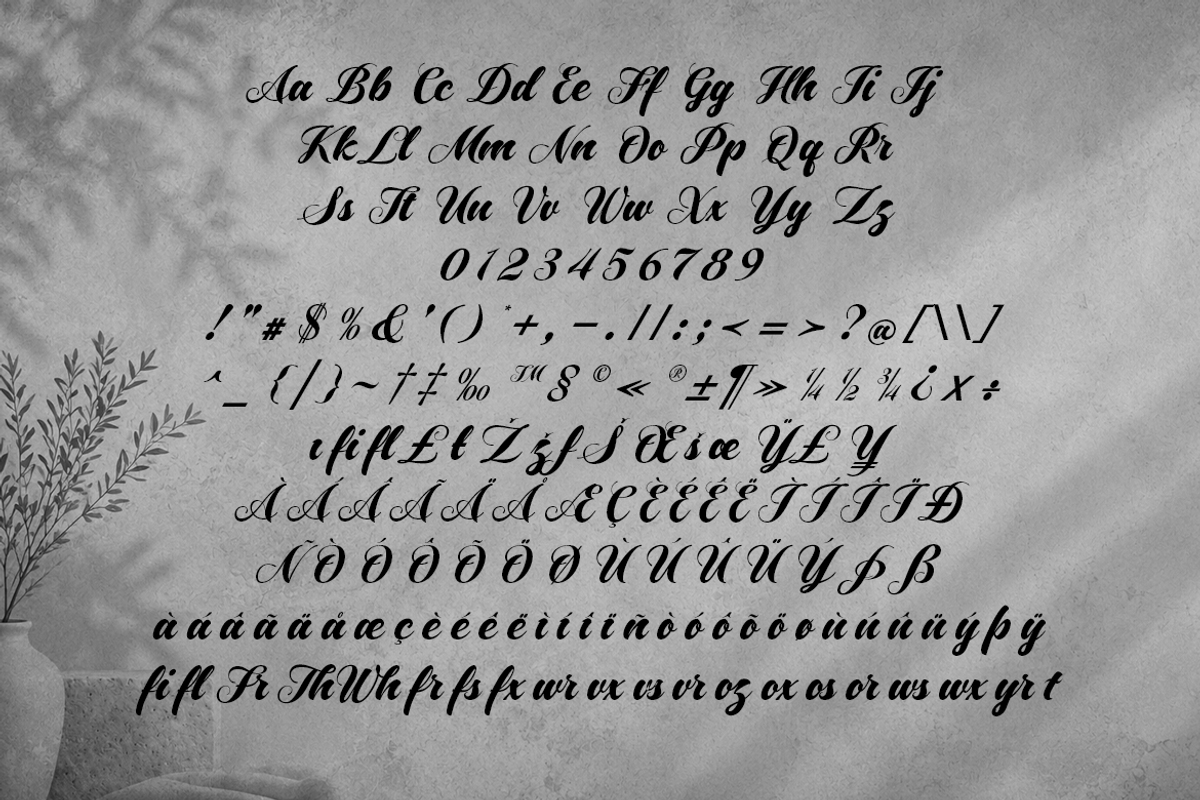 Aa Bb Cc Dd Ee Ff Gg Hh Ii Jj
Kk Ll Mm Nn Oo Pp Qq Rr
Ss Tt Uu Vv Ww Xx Yy Zz
0 1 2 3 4 5 6 7 8 9
! " # $ % & ' ( ) * + , - . / / : ; < = > ? @ [ \ \ ]
^ _ { | } ~ † ‡ ‰ ™ § © « ® ± ¶ » ¼ ½ ¾ ¿ x ÷
ı fi fl £ ł Ž ž f Š Œ š œ Ÿ £ ¥
À Á Â Ã Ä Å Æ Ç È É Ê Ë Ì Í Î Ï Đ
Ñ Ò Ó Ô Õ Ö Ø Ù Ú Û Ü Ý Þ ß
à á â ã ä å æ ç è é ê ë ì í î ï ñ ò ó ô õ ö ø ù ú û ü ý þ ÿ
fi fl Fr Th Wh fr fs fx wr vx vs vr oz ox os or ws wx yr t